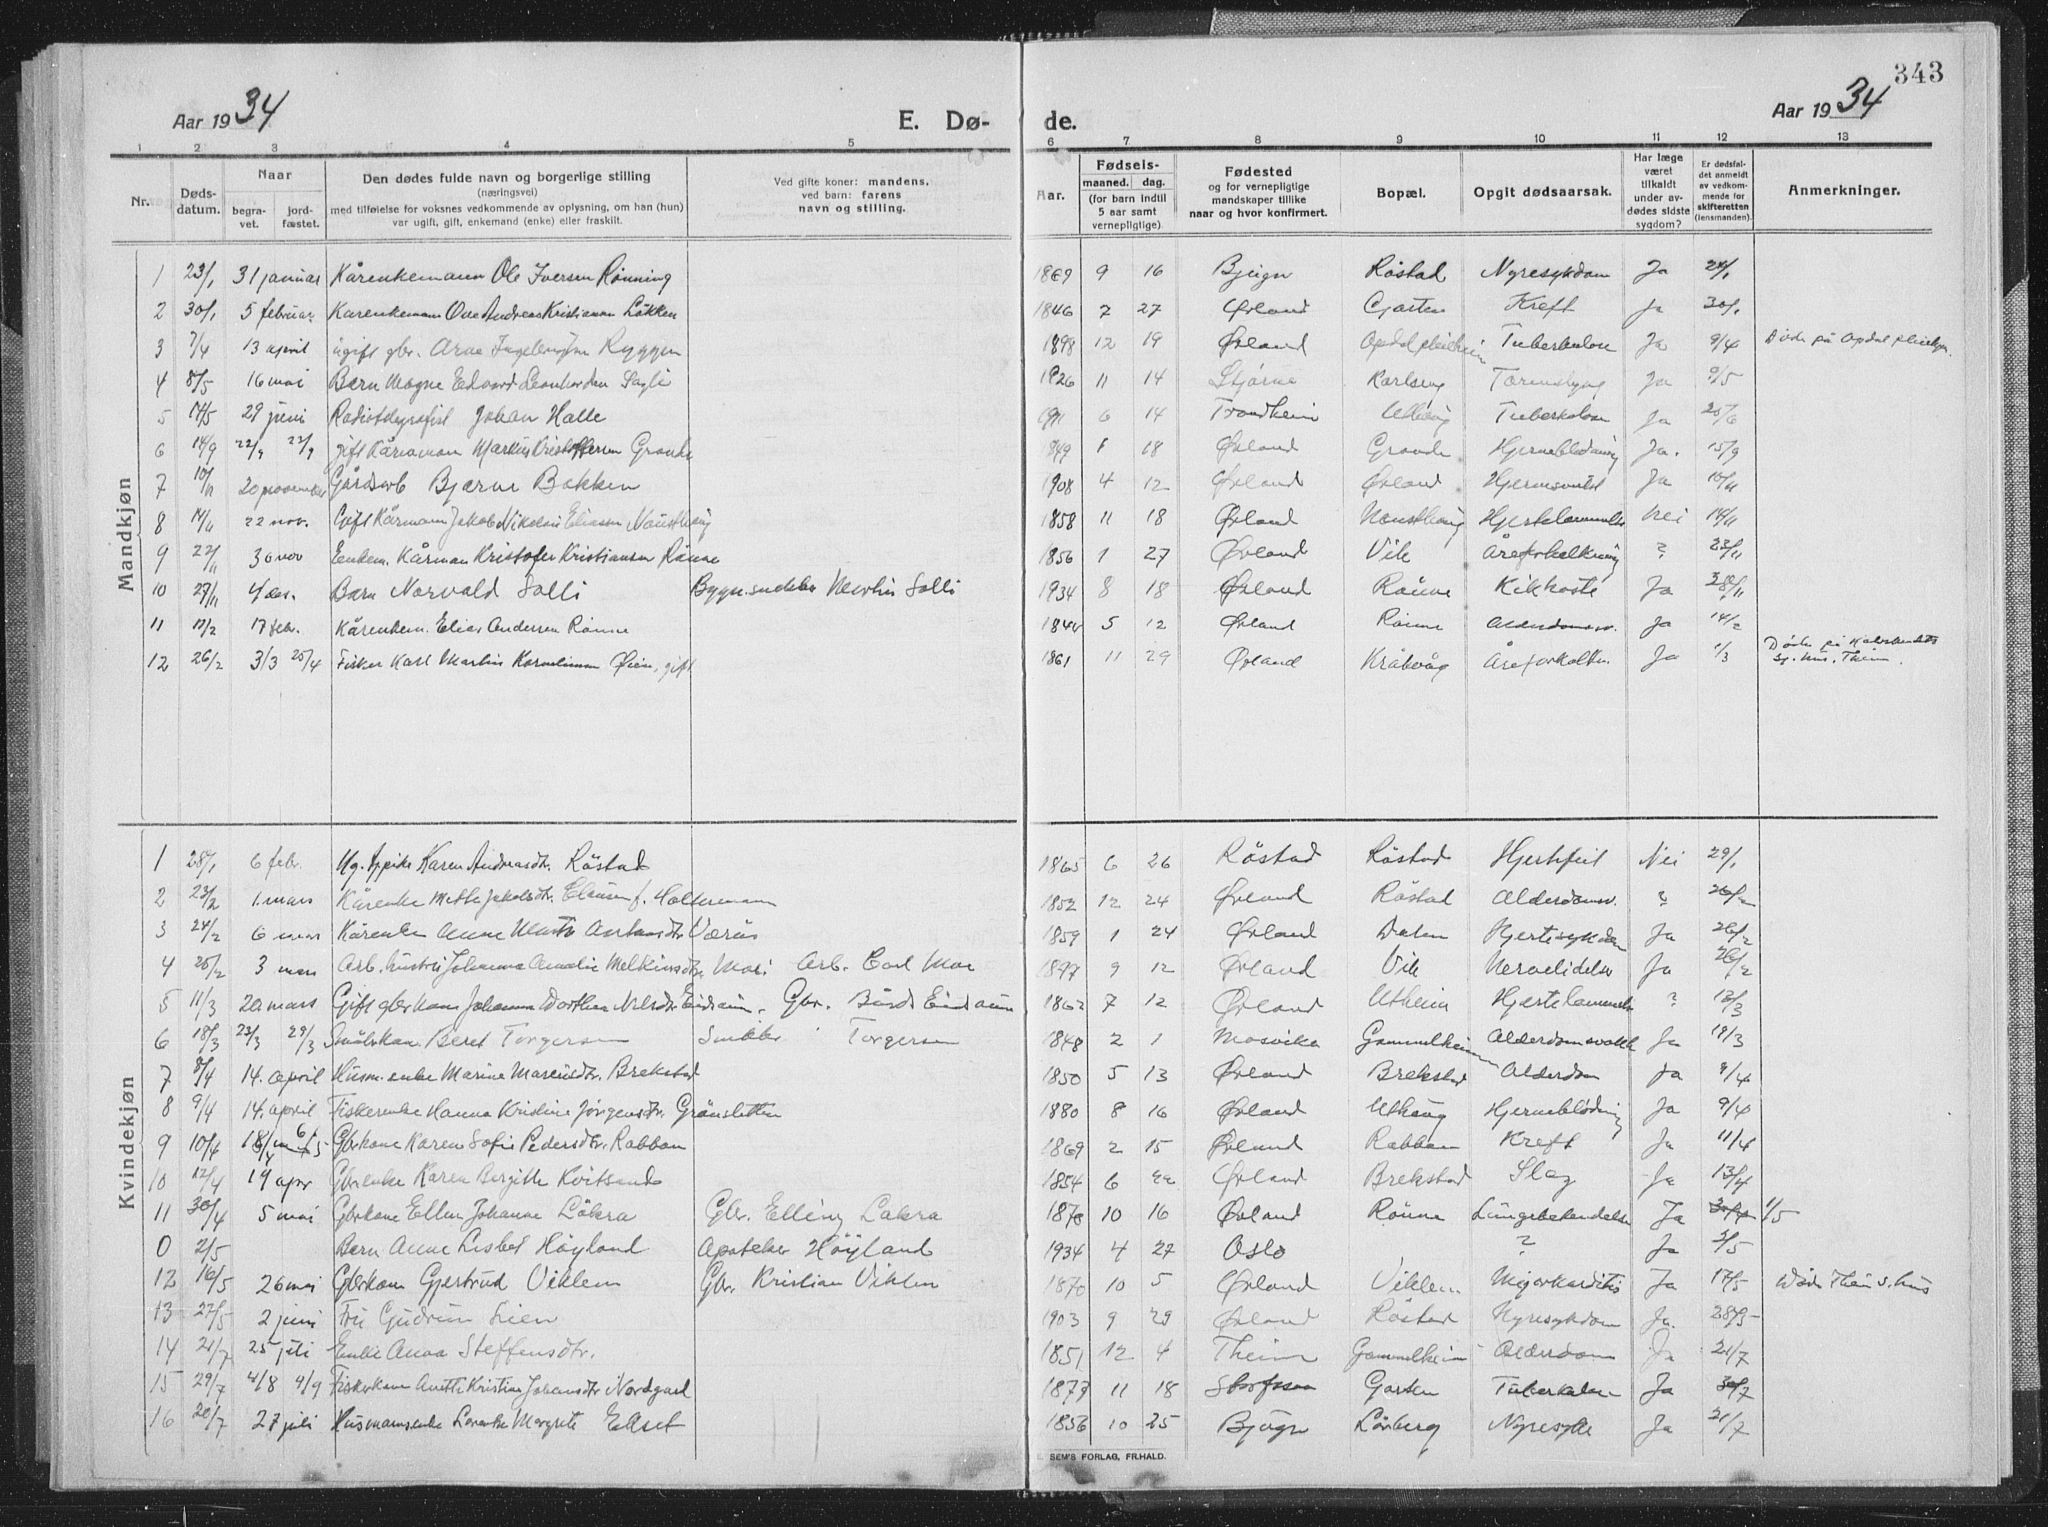 343
Aar 1934 E. Dø- de. Aar 1934
1 2 3 4 5 6 7 8 9 10 11 12 13
Nr. Døds-datum. Naar begra-vet. jord-fæstet. Den dødes fulde navn og borgerlige stilling (næringsvei) med tilføielse for voksnes vedkommende av oplysning, om han (hun) var ugift, gift, enkemand (enke) eller fraskilt. Ved gifte koner: mandens, ved barn: farens navn og stilling. Aar. Fødsels- maaned. dag. (for barn indtil 5 aar samt vernepligtige) Fødested og for vernepligtige mandskaper tillike naar og hvor konfirmert. Bopæl. Opgit dødsaarsak. Har læge været tilkaldt under av-dødes sidste sygdom? Er dødsfal-det anmeldt av vedkom-mende for skifteretten (lensmanden). Anmerkninger.
Mandkjøn
1 23/1 31 januar Kårenkemann Ole Iversen Rønning 1869 9 16 Bjugn Röstad Nyresykdom Ja 24/1
2 30/1 5 februar Karenkemann Ole Andreas Kristiansen Løkken 1846 7 27 Ørland Garten Kreft Ja 30/1
3 7/4 13 april ugift gbr. Arne Ryggen 1898 12 19 Ørland Opdal pleiehjem Tuberkulose Ja 9/4 Døde på Opdal pleiehjem.
4 8/5 16 mai Barn Magne Edvard Leonhardsen Sagli 1926 11 14 Stjørna Karlseng Ja 9/5
5 14/5 29 juni Radiotelegrafist Johan Halle 1911 6 14 Trondheim Uthaug Tuberkulose Ja 25/6
6 14/9 22/9 22/9 gift Kårmann Markus Kristoffersen Grande 1849 1 18 Ørland Grande Hjerneblødning Ja. 15/9
7 10/11 20 november Gårdsarb Bjarne Bakken 1908 4 12 Ørland Ørland Hjernesvulst Ja 10/11
8 14/11 22 nov. Gift Kårmann Jakob Nikolai Eliassen Nausthaug 1858 11 18 Ørland Nausthaug Hjertelammelse Nei 14/11
9 22/11 30 nov Enkem. Kårman Kristofer Kristiansen Rønne 1856 1 27 Ørland Vik Åreforkalkning ? 23/11
10 27/11 4 des. Barn Norvald Solli Martin Solli 1934 8 18 Ørland Rønne Kikhoste Ja 28/11
11 12/2 17 febr. Kårenkem. Elias Andersen Rønne 5 12 Ørland Rønne Alderdomssv. Ja 14/2
12 26/2 3/3 25/4 Fisker Karl Martin Kornelius­sen Øien, gift 1861 11 29 Ørland Kråkvåg Åreforkalkn. Ja 1/3 Døde på sj. hus. Thjem.
Kvindekjøn
1 28/1 6 febr. Ug. Karen Andreasdtr. Röstad 1865 6 26 Röstad Röstad Hjertefeil Nei 29/1
2 23/2 1. mars Kårenke Mette Jakobsdtr. Clausen f. Holtermann 1852 12 24 Ørland Röstad Alderdomsv. ? 26/2
3 24/2 6 mars Kårenke Anne Marta Værås 1859 1 24 Ørland Dalen Hjertesykdom Ja 26/2
4 25/2 3 mars Arb. hustru Johanna Amalie Melkiorsdtr. Moe Arb. Carl Moe 1897 9 12 Ørland Vik Nervelidelse Ja 26/2
5 11/3 20 mars Gift gbr kone Johanna Dorthea Nilsdtr Eidsaune. Gbr. Bård Eidsaune 1862 7 12 Ørland Utheim Hjertelammelse ? 13/3
6 18/3 23/3 29/3 Beret Torgersen Snikker Torgersen 1848 2 1 Mosvika Gammelheimen Alderdomsvakh Ja 19/3
7 8/4 14. april Husm. enke Marine Mareusdtr. Brekstad 1850 5 13 Ørland Brekstad Alderdom Ja 9/4
8 9/4 14. april Fiskerenke Hanna Kristine Jørgensdtr. Grönsletten 1880 8 16 Ørland Uthaug Hjerneblödning Ja 9/4
9 10/4 18/4 6/5 Gbrkone Karen Sofie Pedersdtr. Rabben 1869 2 15 Ørland Rabben Kreft Ja 11/4
10 12/4 19 apr Gbrenke Karen Bergitte Kvitsand 1854 6 22 Ørland Brekstad Slag Ja 13/4
11 30/4 5 mai Gbrkone Ellen Johanne Lökra Gbr. Elling Løkra 1870 10 16 Ørland Rønne Lungebetendelse Ja 30/4 1/5
0 2/5 Barn Anne Lisbet Höyland Apoteker Höyland 1934 4 27 Oslo ? Ja 3/5
12 16/5 26 mai Gbrkone Gjertrud Viklem Gbr. Kristian Viklem 1870 10 5 Ørland Viklem Ja 17/5 Døde Thjem s. hus
13 27/5 2 juni Fru Gudrun Lien 1903 9 29 Ørland Röstad Nyresykdom Ja. 28/5
14 21/7 25 juli Enke Anna Steffensdtr. 1851 12 4 Thjem Gammelheim Alderdom Ja 21/7
15 29/7 4/8 4/9 Fiskerkone Anette Kristine Johansdtr Nordgaard 1877 11 18 Storfosna Garten Tuberkulose Ja 30/7
16 20/7 27 juli Husmannsenke Lorentse Margrete Eldset 1856 10 25 Bjugn Lönberg Nyresyke Ja 21/7
E. SEM'S FORLAG, FR.HALD.